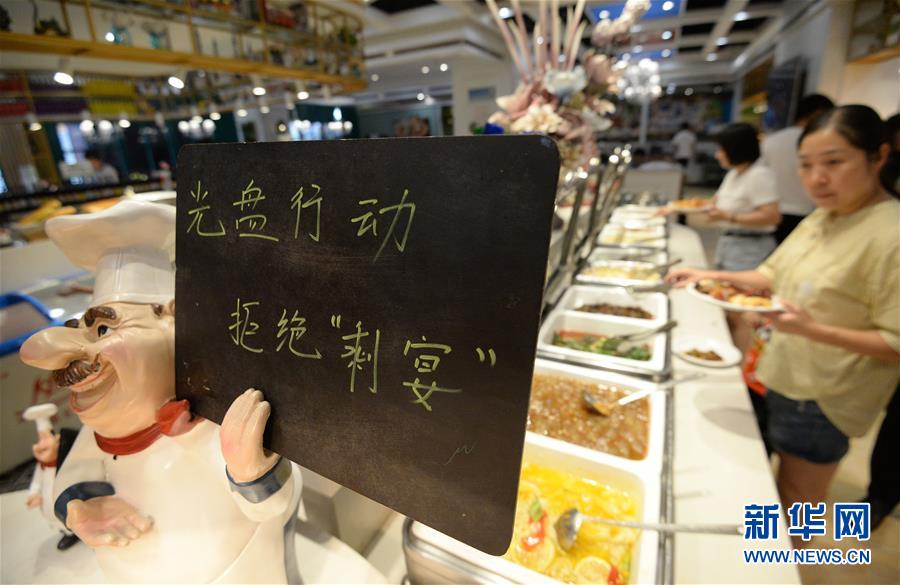 光盘行动
拒绝"剩宴"
新华网
WWW.NEWS.CN